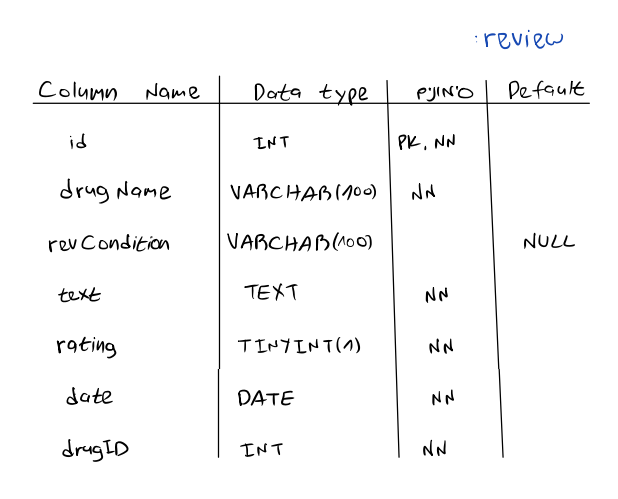 :review
Column Name Data type סימונים Default
id INT PK, NN
drugName VARCHAR(100) NN
revCondition VARCHAR(100) NULL
text TEXT NN
rating TINYINT(1) NN
date DATE NN
drugID INT NN